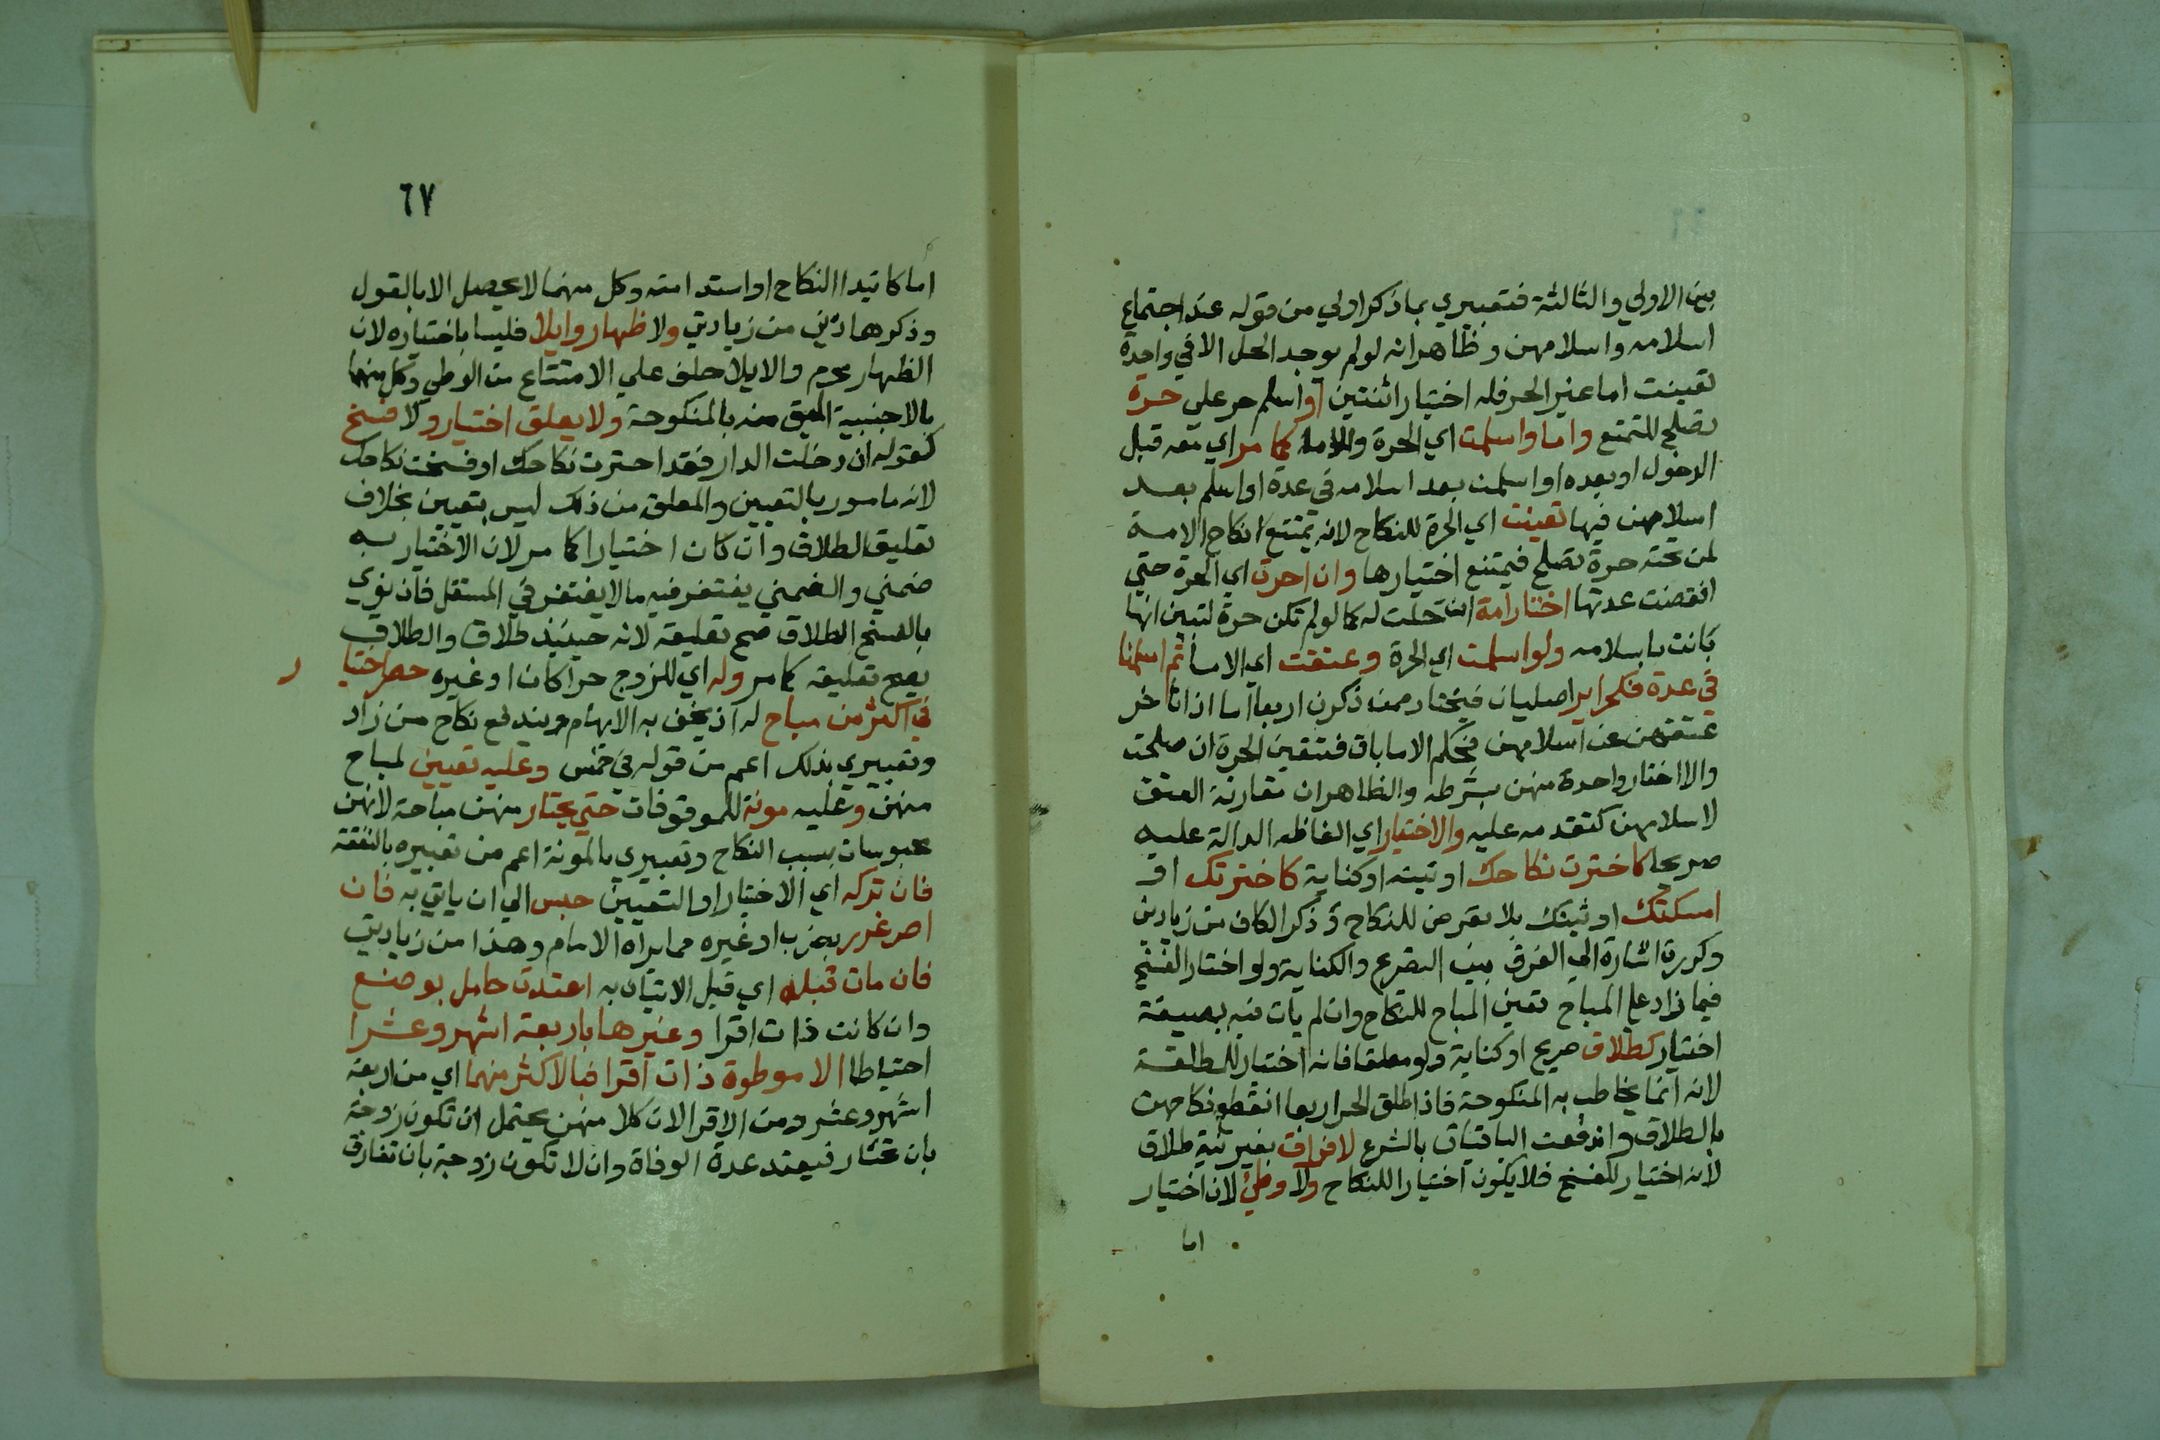 بين الاولي والثالثة فتعبيري بما ذكر اولي من قوله عند اجتماع
اسلامه واسلامهن وظاهر انه لو لم يوجد الحل الا في واحدة
تعينت اما غير الحر فله اختيار اثنتين او اسلم حر علي حرة
تصلح للتمتع واما واسلمت اي الحرة والاماء كما مر اي معه قبل
الدخول او بعده او اسلمت بعد اسلامه في عدة او اسلم بعد
اسلامهن فيها تعينت اي الحرة للنكاح لانه يمتنع نكاح الامة
لمن تحته حرة تصلح فيمتنع اختيارها وان اصرت اي الحرة حتي
انقضت عدتها اختار امة ان حلت له كما لو لم تكن حرة لتبين انها
بانت باسلامه ولو اسلمت اي الحرة وعتقت اي الاما ثم اسلمنا
في عدة فكحراير اصليات فيختار ممن ذكرن اربعا اما اذا تاخر
عتقهن عن اسلامهن فحكم الاما باق فتتعين الحرة ان صلحت
والا اختار واحدة منهن بشرطه والظاهر ان مقارنة العتق
لاسلامهن كتقدمه عليه والاختيار اي الفاظه الدالة عليه
صريحا كاخترت نكاحك او ثبته او كناية كاخترتك او
امسكتك او ثبتك بلا تعرض للنكاح وذكر الكاف من زيادتي
وكررة اشارة الي الفرق بين الصريح والكناية ولو اختار الفسخ
فيما زاد علي المباح تعين المباح للنكاح وان لم يات فيه بصيغة
اختيار كطلاق صريح او كناية ولو معلقا فانه اختيار للمطلقة
لانه انما يخاطب به المنكوحة فاذا طلق الحر اربعا انقطع نكاحهن
بالطلاق واندفعت الباقيات بالشرع لا فراق بغير نية طلاق
لانه اختيار للفسخ فلا يكون اختيارا للنكاح ولا وطئ لان اختيار
اما
٦٧
اما كابتدا النكاح او استدامته وكل منهما لا يحصل الا بالقول
وذكر هاذين من زيادتي ولا ظهار وايلا فليسا باختيار لان
الظهار محرم والايلا حلف علي الامتناع من الوطي وكل منهما
بالاجنبية اليق منه بالمنكوحة ولا يعلق اختيار ولا فسخ
كقوله ان دخلت الدار فقد اخترت نكاحك او فسخت نكاحك
لانه مامور بالتعيين والمعلق من ذلك ليس بتعيين بخلاف
تعليق الطلاق وان كان اختيارا كما مر لان الاختيار به
ضمني والضمني يغتفر فيه ما لا يغتفر في المستقل فان نوي
بالفسخ الطلاق صح تعليقه لانه حينيذ طلاق والطلاق
يصح تعليقه كما مر وله اي للزوج حرا كان او غيره حصر اختيا
ر
في اكثر من مباح له اذ يخف به الابهام ويندفع نكاح من زاد
وتعبيري بذلك اعم من قوله في خمس وعليه تعيين لمباح
منهن وعليه مونة للموقوفات حتي يختار منهن مباحة لانهن
محبوسات بسبب النكاح وتعبيري بالمونة اعم من تعبيره بالنفقة
فان تركه اي الاختيار او التعيين حبس الي ان ياتي به فان
اصر عزر بضرب او غيره مما يراه الامام وهذا من زيادتي
فان مات قبله اي قبل الاتيان به اعتدت حامل بوضع
وان كانت ذات اقرا وغيرها باربعة اشهر وعشرا
احتياطا الا موطوة ذات اقرا فبالاكثر منهما اي من اربعة
اشهر وعشر ومن الاقرا لان كلا منهن يحتمل ان تكون زوجة
بان تختار فيعتد عدة الوفاة وان لا تكون زوجة بان تفارق